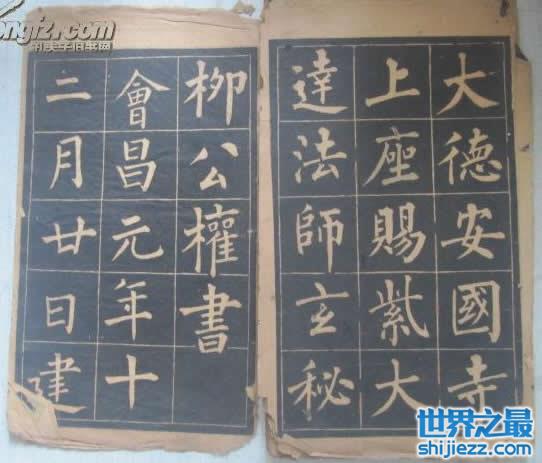 大德安國寺
上座賜紫大
達法師玄秘
柳公權書
會昌元年十
二月廿日建
世界之最
shijiezz.com